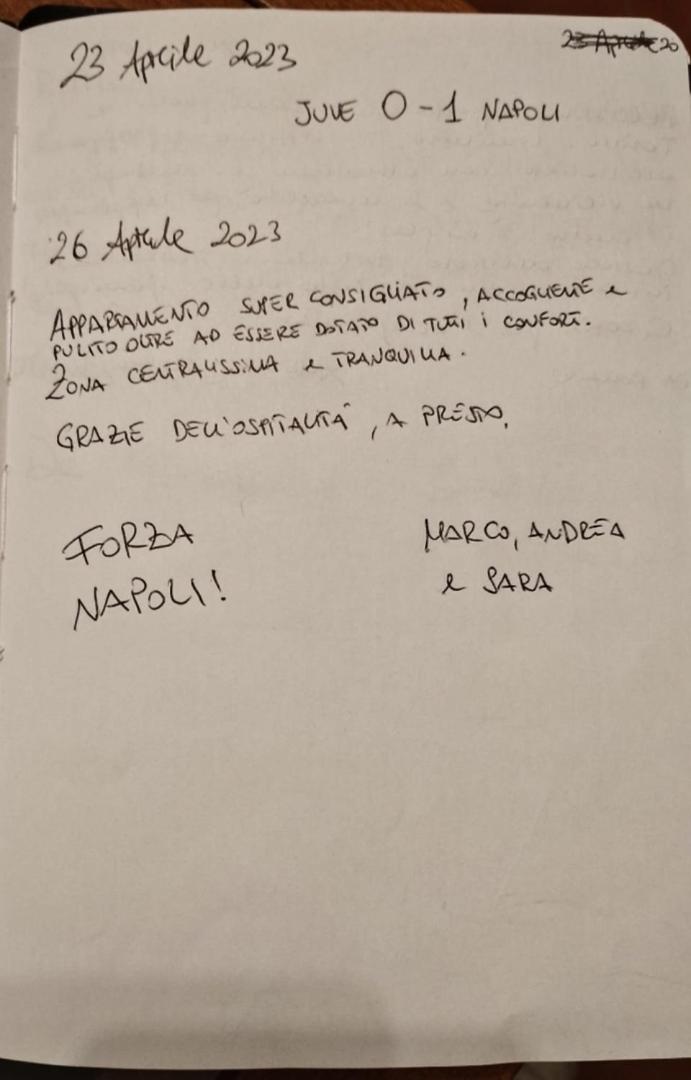 23 Aprile 20
23 Aprile 2023
JUVE 0-1 NAPOLI
26 Aprile 2023
APPARTAMENTO SUPER CONSIGLIATO, ACCOGLIENTE e
PULITO OLTRE AD ESSERE DOTATO DI TUTTI i CONFORT.
ZONA CENTRALISSIMA e TRANQUILLA.
GRAZIE DELL'OSPITALITÀ, A PRESTO,
FORZA
NAPOLI!
MARCO, ANDREA
e SARA